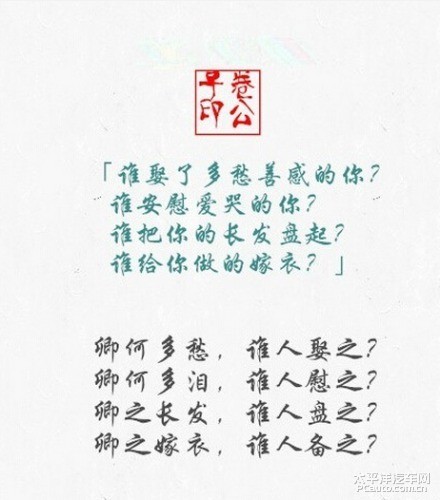 「谁娶了多愁善感的你？
谁安慰爱哭的你？
谁把你的长发盘起？
谁给你做的嫁衣？」
卿何多愁，谁人娶之？
卿何多泪，谁人慰之？
卿之长发，谁人盘之？
卿之嫁衣，谁人备之？
太平洋汽车网
PCauto.com.cn